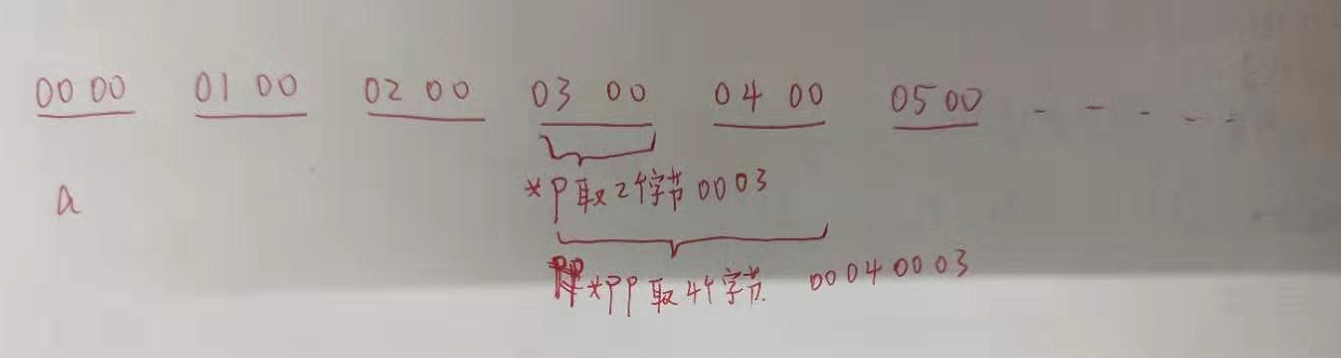 00 00 01 00 02 00 03 00 04 00 05 00 - - - - -
a
*p取2个字节 0003
*pp取4个字节 00040003